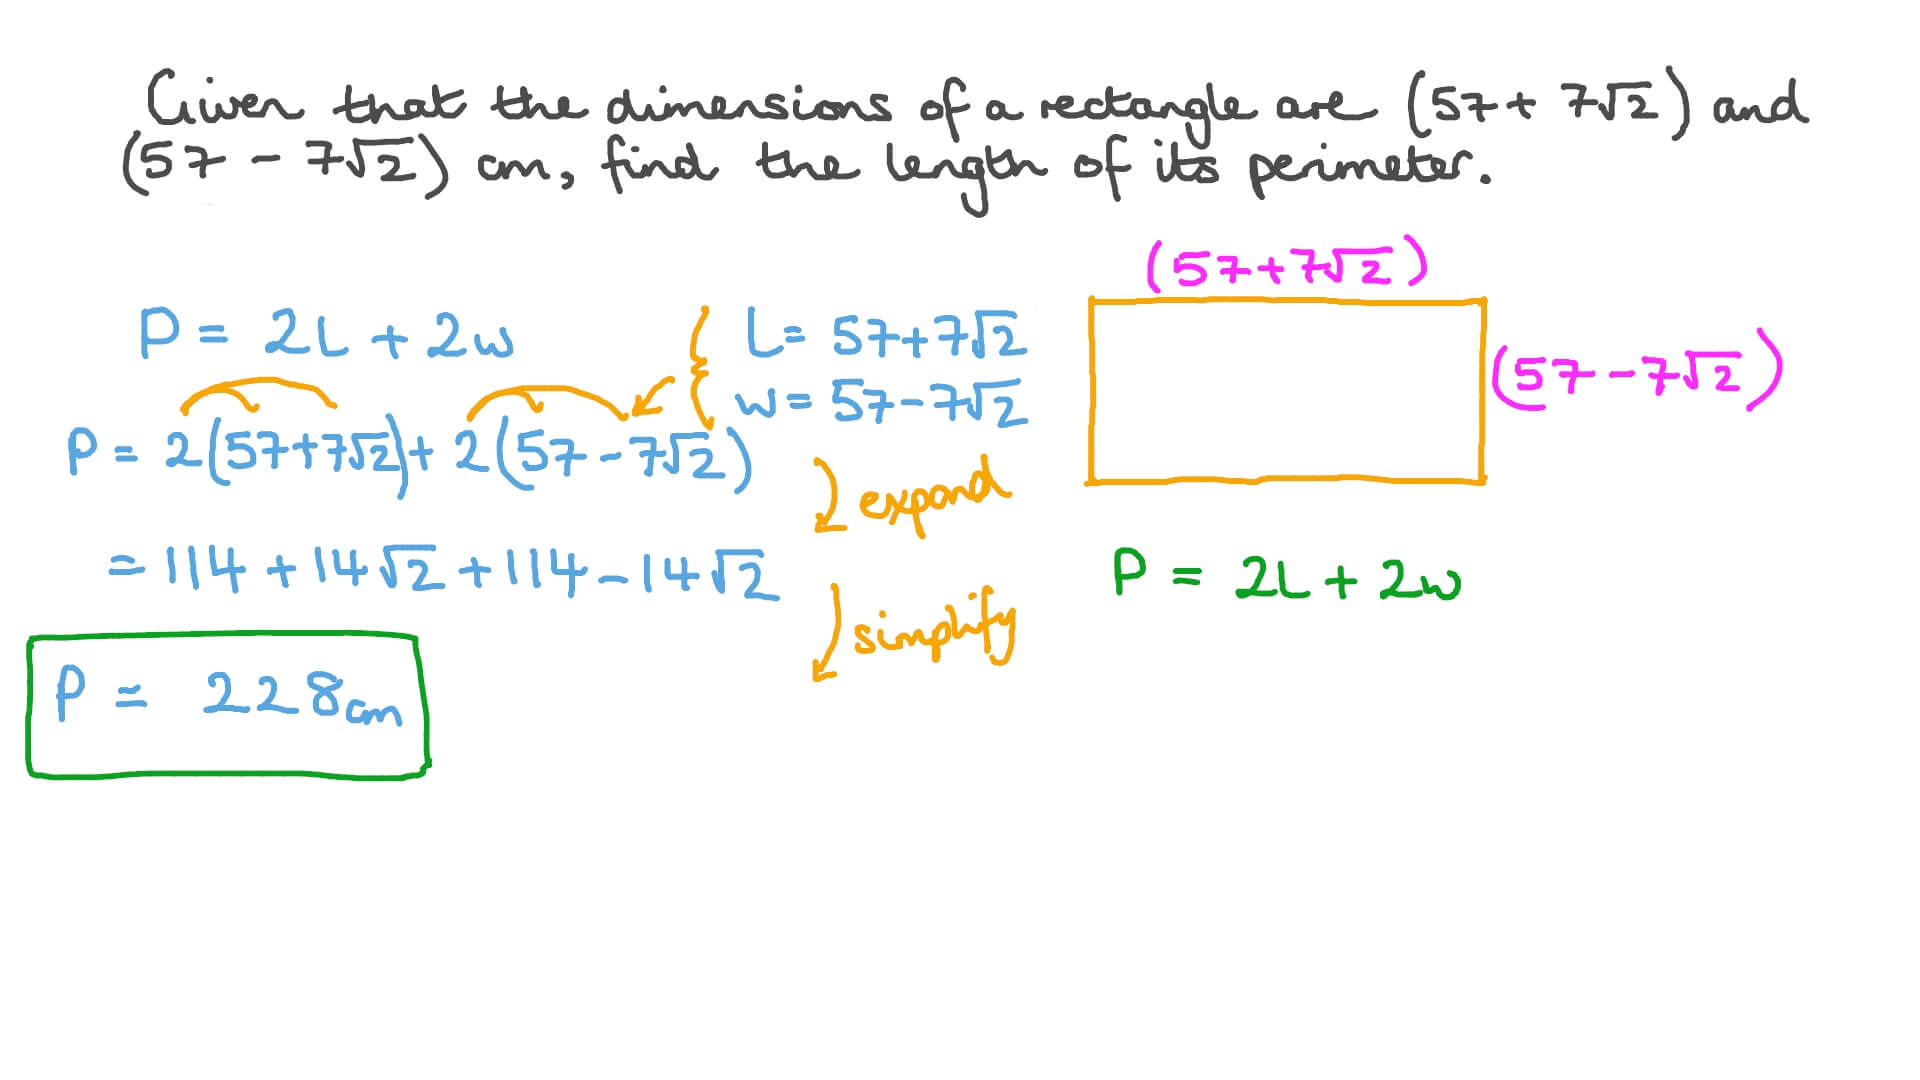 Given that the dimensions of a rectangle are (57 + 7√2) and
(57 - 7√2) cm, find the length of its perimeter.
(57+7√2)
P = 2L + 2w
L = 57+7√2
(57-7√2)
w = 57-7√2
P = 2(57+7√2) + 2(57-7√2)
expand
= 114 + 14√2 + 114 - 14√2
P = 2L + 2w
simplify
P = 228cm